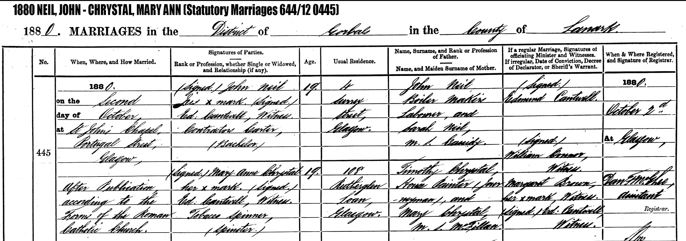 1880 NEIL, JOHN - CHRYSTAL, MARY ANN (Statutory Marriages 644/12 0445)
1880. MARRIAGES in the District of Gorbals in the County of Lanark
No.
When, Where, and How Married.
Signatures of Parties.
Rank or Profession, whether Single or Widowed, and Relationship (if any).
Age.
Usual Residence.
Name, Surname, and Rank or Profession of Father.
Name, and Maiden Surname of Mother.
If a regular Marriage, Signatures of officiating Minister and Witnesses.
If irregular, Date of Conviction, Decree of Declarator, or Sheriff's Warrant.
When & Where Registered, and Signature of Registrar.
445
1880.
on the Second
day of October,
at St John's Chapel,
Portugal Street,
Glasgow.
After Publication,
according to the
Form of the Roman
Catholic Church.
(Signed) John Neil
his x mark. (Signed)
Ed. Cantwell, Witness.
Contractor Carter,
(Bachelor)
(Signed) Mary Anne Chrystal
her x mark. (Signed)
Ed. Cantwell, Witness.
Tobacco Spinner,
(Spinster)
19.
19.
4
Surrey
Street,
Glasgow.
108
Rutherglen
Loan,
Glasgow.
John Neil
Boiler Makers
Labourer, and
Sarah Neil,
m. s. Cassidy
Timothy Chrystal,
House Painter (Jour
neyman), and
Mary Chrystal,
m. s. McMillan
(Signed)
Edmund Cantwell.
(Signed)
William Connor,
Witness.
Margaret Brown,
her x mark, Witness.
(Signed) Ed. Cantwell
Witness.
1880.
October 2nd
At Glasgow,
assistant
Registrar.